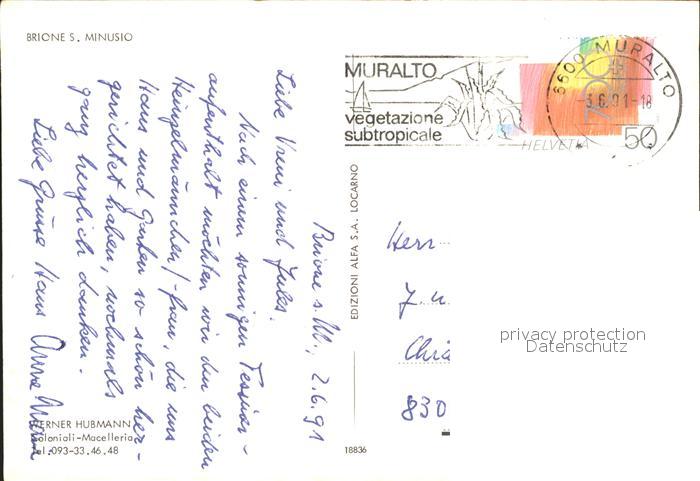 BRIONE S. MINUSIO
Brione s. M., 2.6.91
Liebe Vreni und Jules.
Nach einem sonnigen Tessiner-
aufenthalt möchten wir den beiden
Heinzelmännchen/-frau, die uns
Haus und Garten so schön her-
gerichtet haben, nochmals
ganz herzlich danken.
Liebe Grüsse Hans
WERNER HUBMANN
Coloniali-Macelleria
Tel. 093-33.46.48
EDIZIONI ALFA S.A. LOCARNO
18836
MURALTO
vegetazione
subtropicale
6600 MURALTO
3.6.91-18
HELVETIA
50
Herr
J. u.
830
privacy protection
Datenschutz